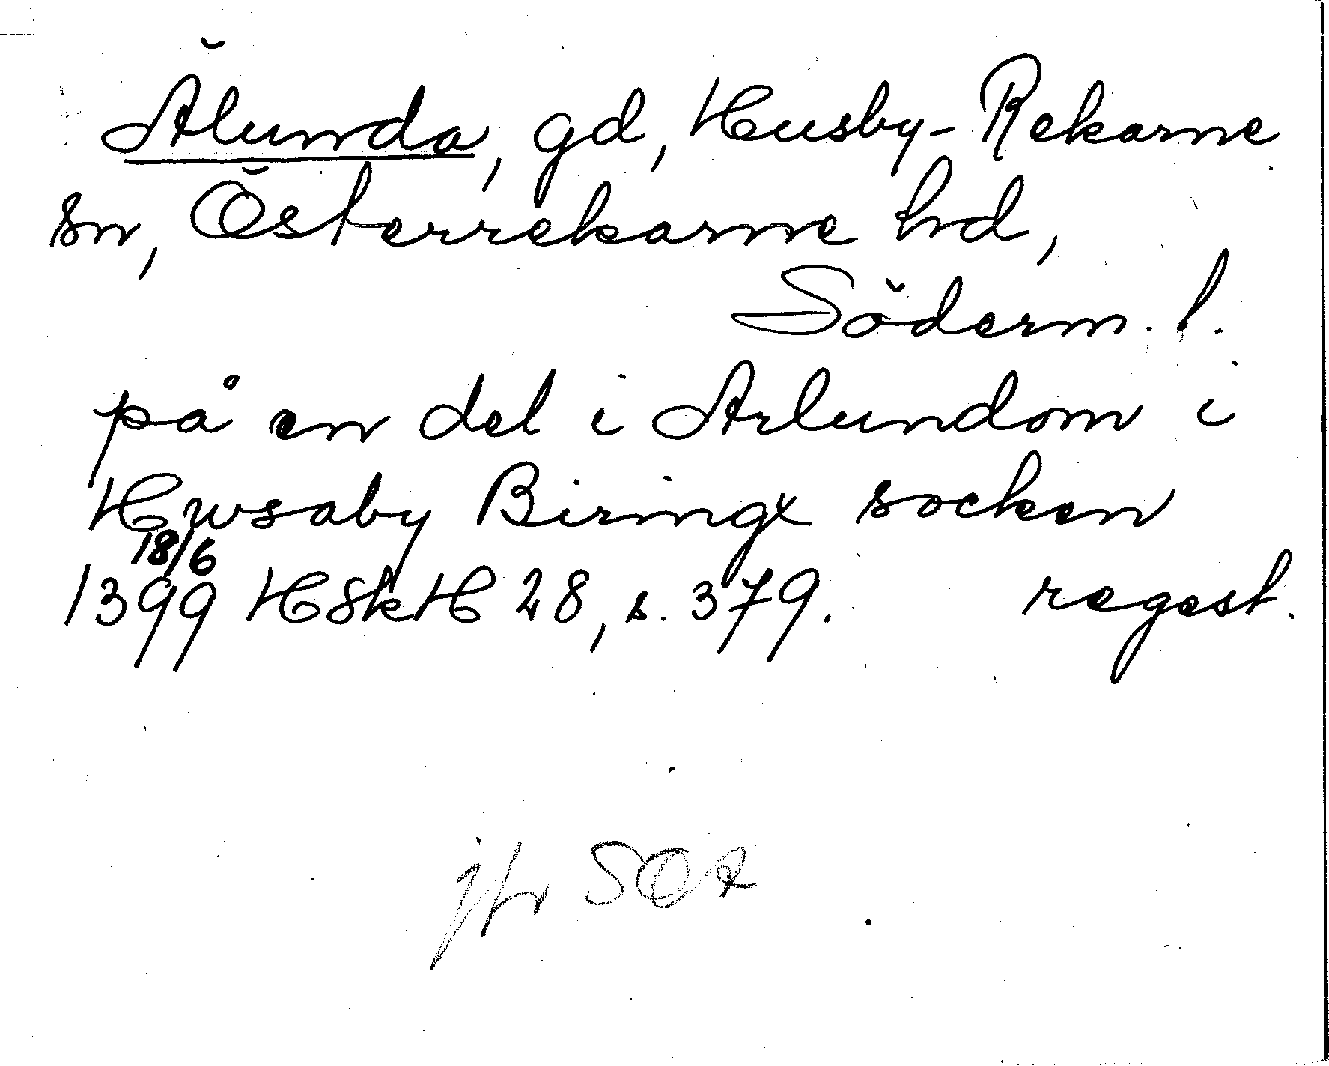 Älunda, gd, Husby-Rekarne
sn, Österrekarne hd,
Söderm. l.
på en del i Arlundom i
Hwsaby Biringx socken
18/6
1399 HSkH 28, s. 379. regest.
jfr SOÄ